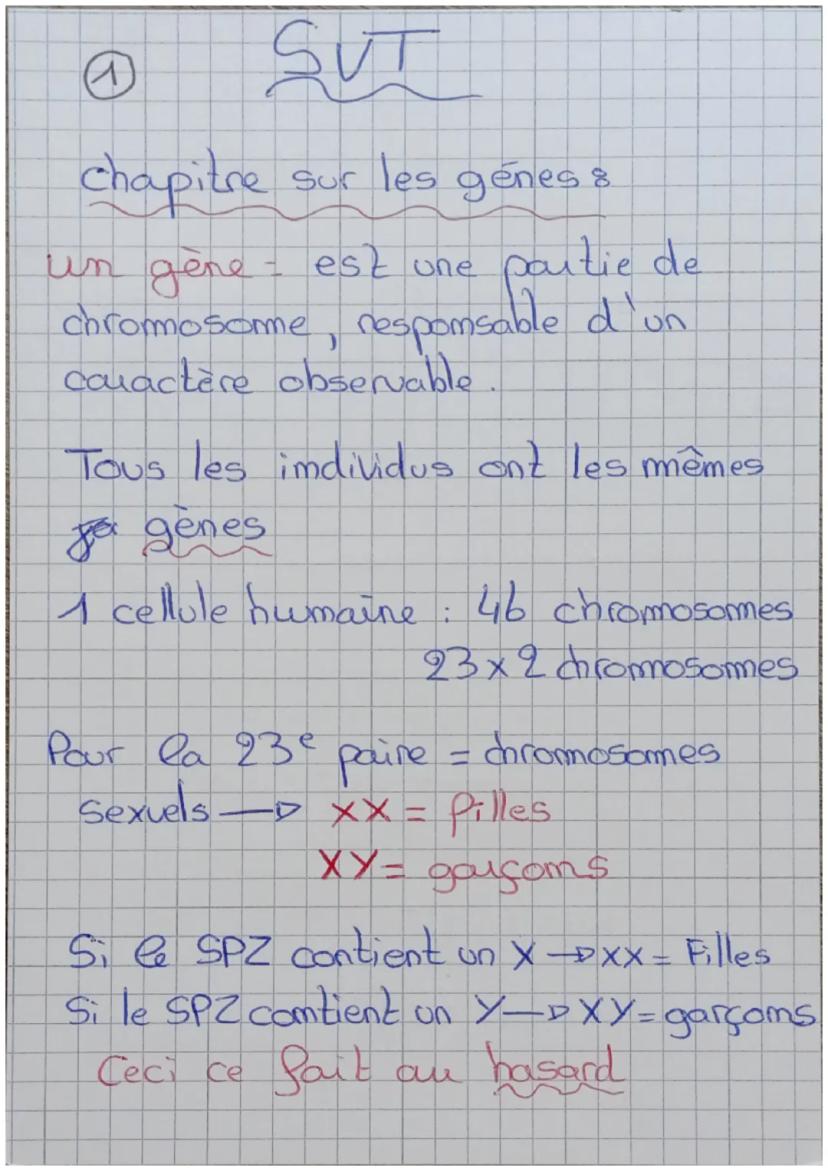 SVT
1
chapitre sur les gènes :
un gène = est une partie de
chromosome, responsable d'un
caractère observable.
Tous les individus ont les mêmes
gènes
1 cellule humaine : 46 chromosomes
23 x 2 chromosomes
Pour la 23e paire = chromosomes
sexuels → XX = filles
XY = garçons
Si le SPZ contient un X → XX = Filles
Si le SPZ contient un Y → XY = garçons
Ceci ce fait au hasard